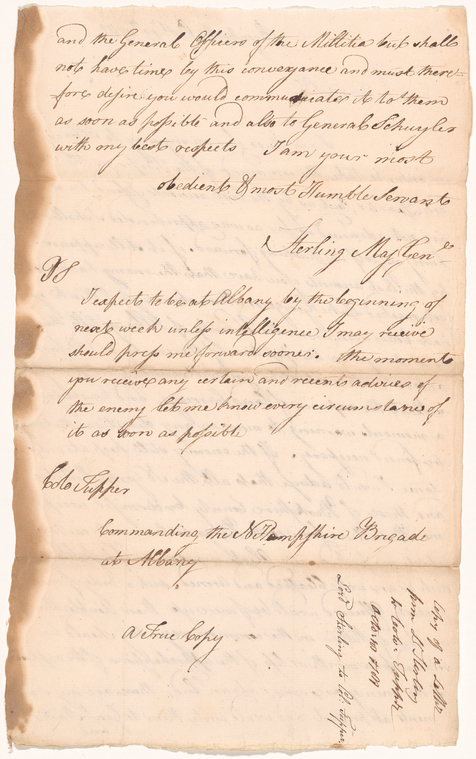 and the General Officers of the Millitia but shall
not have time by this conveyance and must there-
fore desire you would communicate it to them
as soon as possible and also to General Schuyler
with my best respects I am your most
obedient & most Humble Servant
Sterling Maj Genl
PS
I expect to be at Albany by the beginning of
next week unless intelligence I may receive
should press me forward sooner. the moment
you receive any certain and recent advices of
the enemy let me know every circumstance of
it as soon as possible
Colo Tupper
Commanding the N Hampshire Brigade
at Albany
A True Copy
Lord Sterling to Col. Tupper
Copy of a Letter
from Ld Sterling
to Colo Tupper